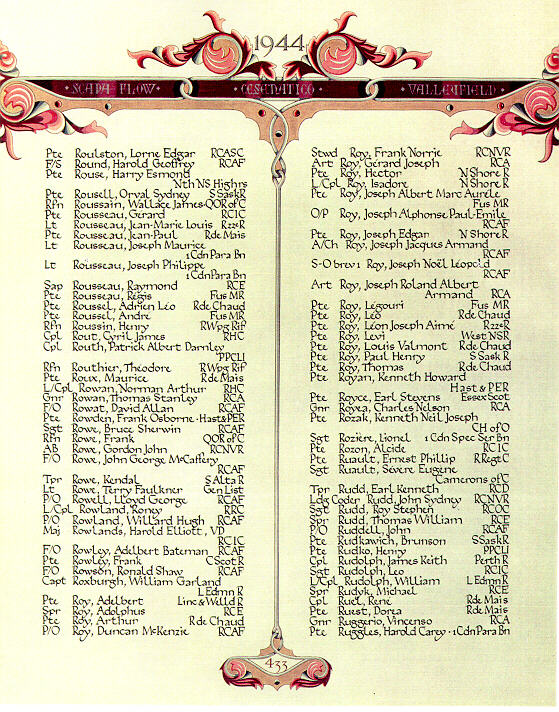 1944
SCAPA FLOW · CESENATICO · VALLEYFIELD
Pte Roulston, Lorne Edgar RCASC
F/S Round, Harold Geoffrey RCAF
Pte Rouse, Harry Esmond
Nth NS Highrs
Pte Rousell, Orval Sydney S Sask R
Rfn Roussain, Wallace James QOR of C
Pte Rousseau, Gérard RCIC
Lt Rousseau, Jean-Marie Louis R22eR
Pte Rousseau, Jean-Paul R de Mais
Lt Rousseau, Joseph Maurice
1 Cdn Para Bn
Lt Rousseau, Joseph Philippe
1 Cdn Para Bn
Sap Rousseau, Raymond RCE
Pte Rousseau, Régis Fus MR
Pte Roussel, Adrien Léo R de Chaud
Pte Roussel, André Fus MR
Rfn Roussin, Henry R Wpg Rif
Cpl Rout, Cyril James RHC
Cpl Routh, Patrick Albert Darnley
PPCLI
Rfn Routhier, Théodore R Wpg Rif
Pte Roux, Maurice R de Mais
L/Cpl Rowan, Norman Arthur RHC
Gnr Rowan, Thomas Stanley RCA
F/O Rowat, David Allan RCAF
Pte Rowden, Frank Osborne Hast & PER
Sgt Rowe, Bruce Sherwin RCAF
Rfn Rowe, Frank QOR of C
AB Rowe, Gordon John RCNVR
F/O Rowe, John George McCaffery
RCAF
Tpr Rowe, Kendal S Alta R
Lt Rowe, Terry Faulkner Gen List
P/O Rowell, Lloyd George RCAF
L/Cpl Rowland, Roney RRC
P/O Rowland, Willard Hugh RCAF
Maj Rowlands, Harold Elliott, VD
RCIC
F/O Rowley, Adelbert Bateman RCAF
Pte Rowley, Frank C Scot R
F/O Rowson, Ronald Shaw RCAF
Capt Roxburgh, William Garland
L Edmn R
Pte Roy, Adelbert Linc & Welld R
Spr Roy, Adolphus RCE
Pte Roy, Arthur R de Chaud
P/O Roy, Duncan McKenzie RCAF
Stwd Roy, Frank Norrie RCNVR
Art Roy, Gérard Joseph RCA
Pte Roy, Hector N Shore R
L/Cpl Roy, Isadore N Shore R
Pte Roy, Joseph Albert Marc Aurèle
Fus MR
O/P Roy, Joseph Alphonse Paul-Emile
RCAF
Pte Roy, Joseph Edgar N Shore R
A/Ch Roy, Joseph Jacques Armand
RCAF
S-O brev 1 Roy, Joseph Noël Léopold
RCAF
Art Roy, Joseph Roland Albert
Armand RCA
Pte Roy, Légouri Fus MR
Pte Roy, Léo R de Chaud
Pte Roy, Léon Joseph Aimé R22eR
Pte Roy, Levi West NSR
Pte Roy, Louis Valmont R de Chaud
Pte Roy, Paul Henry S Sask R
Pte Roy, Thomas R de Chaud
Pte Royan, Kenneth Howard
Hast & PER
Pte Royce, Earl Stevens Essex Scot
Gnr Royea, Charles Nelson RCA
Pte Rozak, Kenneth Neil Joseph
CH of O
Sgt Rozière, Lionel 1 Cdn Spec Ser Bn
Pte Rozon, Alcide RCIC
Pte Ruault, Ernest Phillip R Regt C
Sgt Ruault, Sévère Eugène
Camerons of C
Tpr Rudd, Earl Kenneth RCD
Ldg Coder Rudd, John Sydney RCNVR
Sgt Rudd, Roy Stephen RCOC
Spr Rudd, Thomas William RCE
P/O Ruddell, John RCAF
Pte Rudkawich, Brunson S Sask R
Pte Rudko, Henry PPCLI
Cpl Rudolph, James Keith Perth R
Sgt Rudolph, Leo RCIC
L/Cpl Rudolph, William L Edmn R
Spr Rudyk, Michael RCE
Cpl Ruel, René R de Mais
Pte Ruest, Dorea R de Mais
Gnr Ruggerio, Vincenso RCA
Pte Ruggles, Harold Carey 1 Cdn Para Bn
433